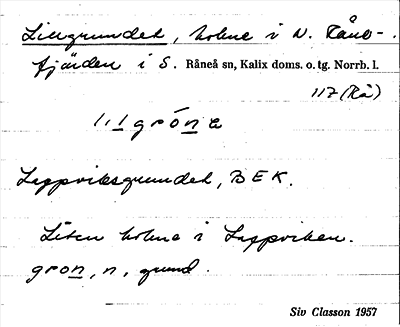 Lillgrundet, holme i N. Råne-
fjärden i S. Råneå sn, Kalix doms. o. tg. Norrb. l.
117 (Rå)
Lappviksgrundet, BEK.
Liten holme i Lappviken.
gron, n, grund.
Siv Classon 1957